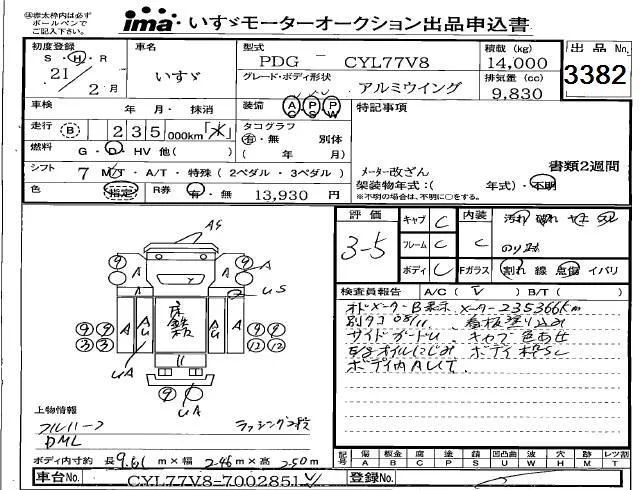 赤太枠内は必ず
ボールペンで
ご記入下さい。
ima いすゞモーターオークション出品申込書
初度登録
S・H・R
21/2月
車名
いすゞ
型式
PDG - CYL77V8
グレード・ボディ形状
アルミウイング
積載(kg)
14,000
排気量(cc)
9,830
出品No.
3382
車検 年 月・抹消
装備 AC PS PW
特記事項
走行 B 235000km「水」
タコグラフ
有・無 別体
( 年 月)
燃料 G・D・HV 他( )
書類2週間
シフト 7 M/T・A/T・特殊(2ペダル・3ペダル)
メーター改ざん
架装物年式:( 年式)・不明
※不明の場合は、不明に○をする。
色 指定 R券 有・無 13,930 円
AS
A
US
A
AU
床鉄板
AU
A
UA
UA
評価
3-5
キャブ C
フレーム C
ボディ C
内装 C
Fガラス
汚れ
割れ 線 点傷 イバリ
検査員報告 A/C( V ) B/T( )
オドメーターB表示 メーター235366km
別タコ 05/11. 看板塗り込み
サイドガードU. キャブ色あせ
ボディ内AUT.
上物情報
フルハーフ
DML
ラッシング2段
ボディ内寸約 長9.61m×幅 2.46m×高 2.50m
記号
傷 A
板金 B
腐 C
塗 P
錆 S
凹 U
凸凹曲 W
欠 H
穴 X
跡 M
レツ割 T
車台No. CYL77V8-7002851
登録No.